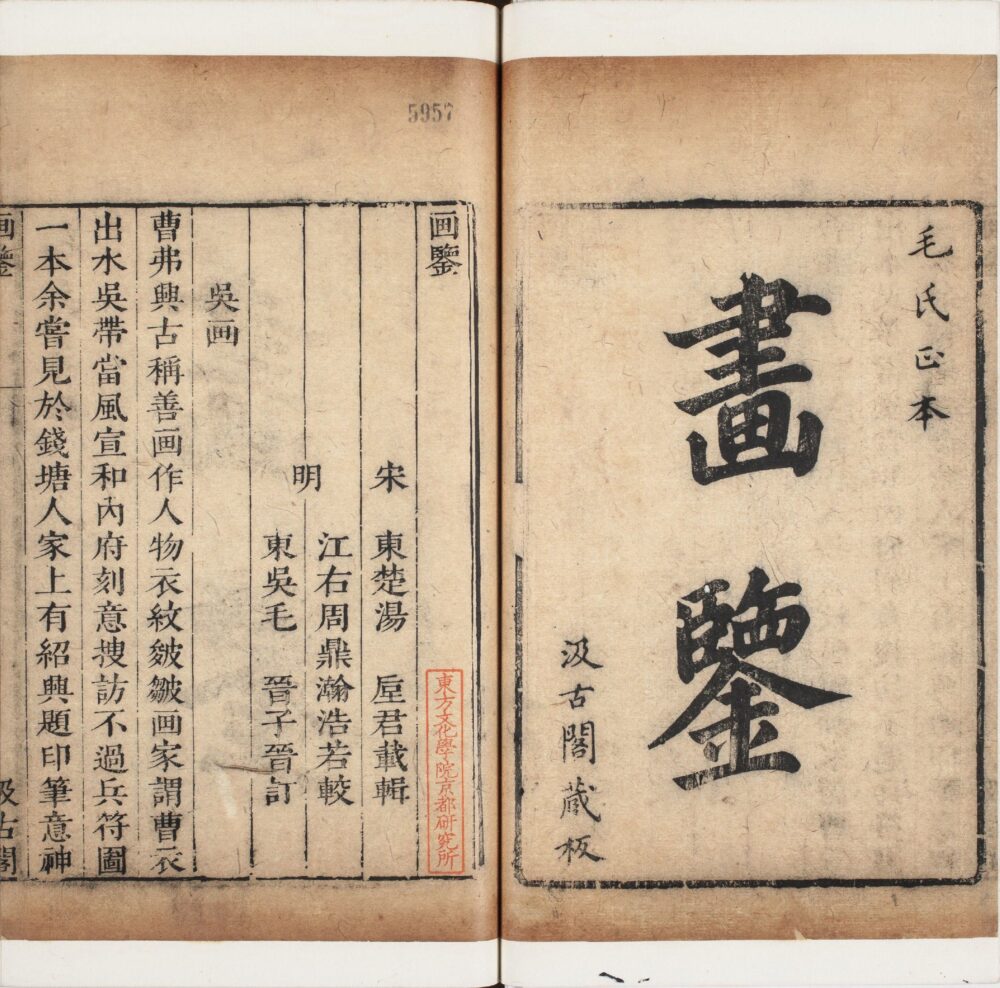 毛氏正本
畫鑒
汲古閣蔵板
5957
画鑒
宋 東楚湯 垕君載輯
江右周鼎瀚浩若較
明
東吳毛 晉子晉訂
東方文化學院京都研究所
吳画
曹弗興古稱善画作人物衣紋皴皺画家謂曹衣
出水吳帶當風宣和內府刻意搜訪不過兵符圖
一本余嘗見於錢塘人家上有紹興題印筆意神
画鑒
汲古閣